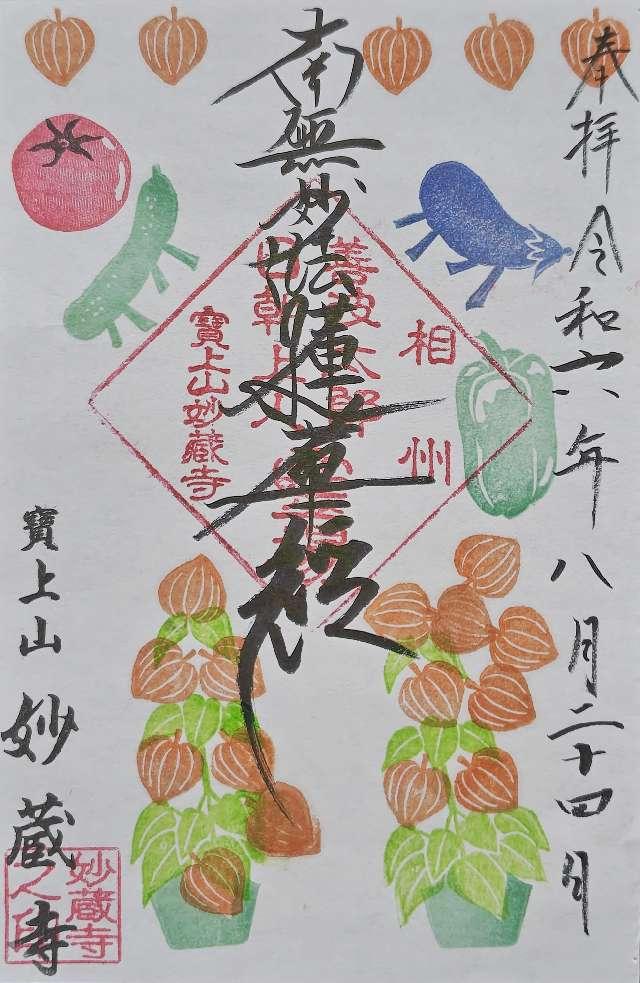 奉拝 令和六年八月二十四日
南無妙法蓮華経
相州
寳上山妙蔵寺
寳上山 妙蔵寺
妙蔵寺